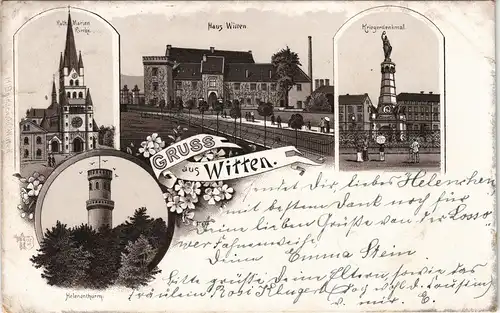 Kath. Marien
Kirche.
Haus Witten.
Kriegerdenkmal.
GRUSS
aus Witten.
Helenenthurm.
sendet Dir, liebes Helenchen
mit bestem Dank noch für
Deine lieben Grüße von der
Deine Emma Stein
Bitte grüße Deine Eltern, sowie das
Fräulein Rosi
v. mir. E.